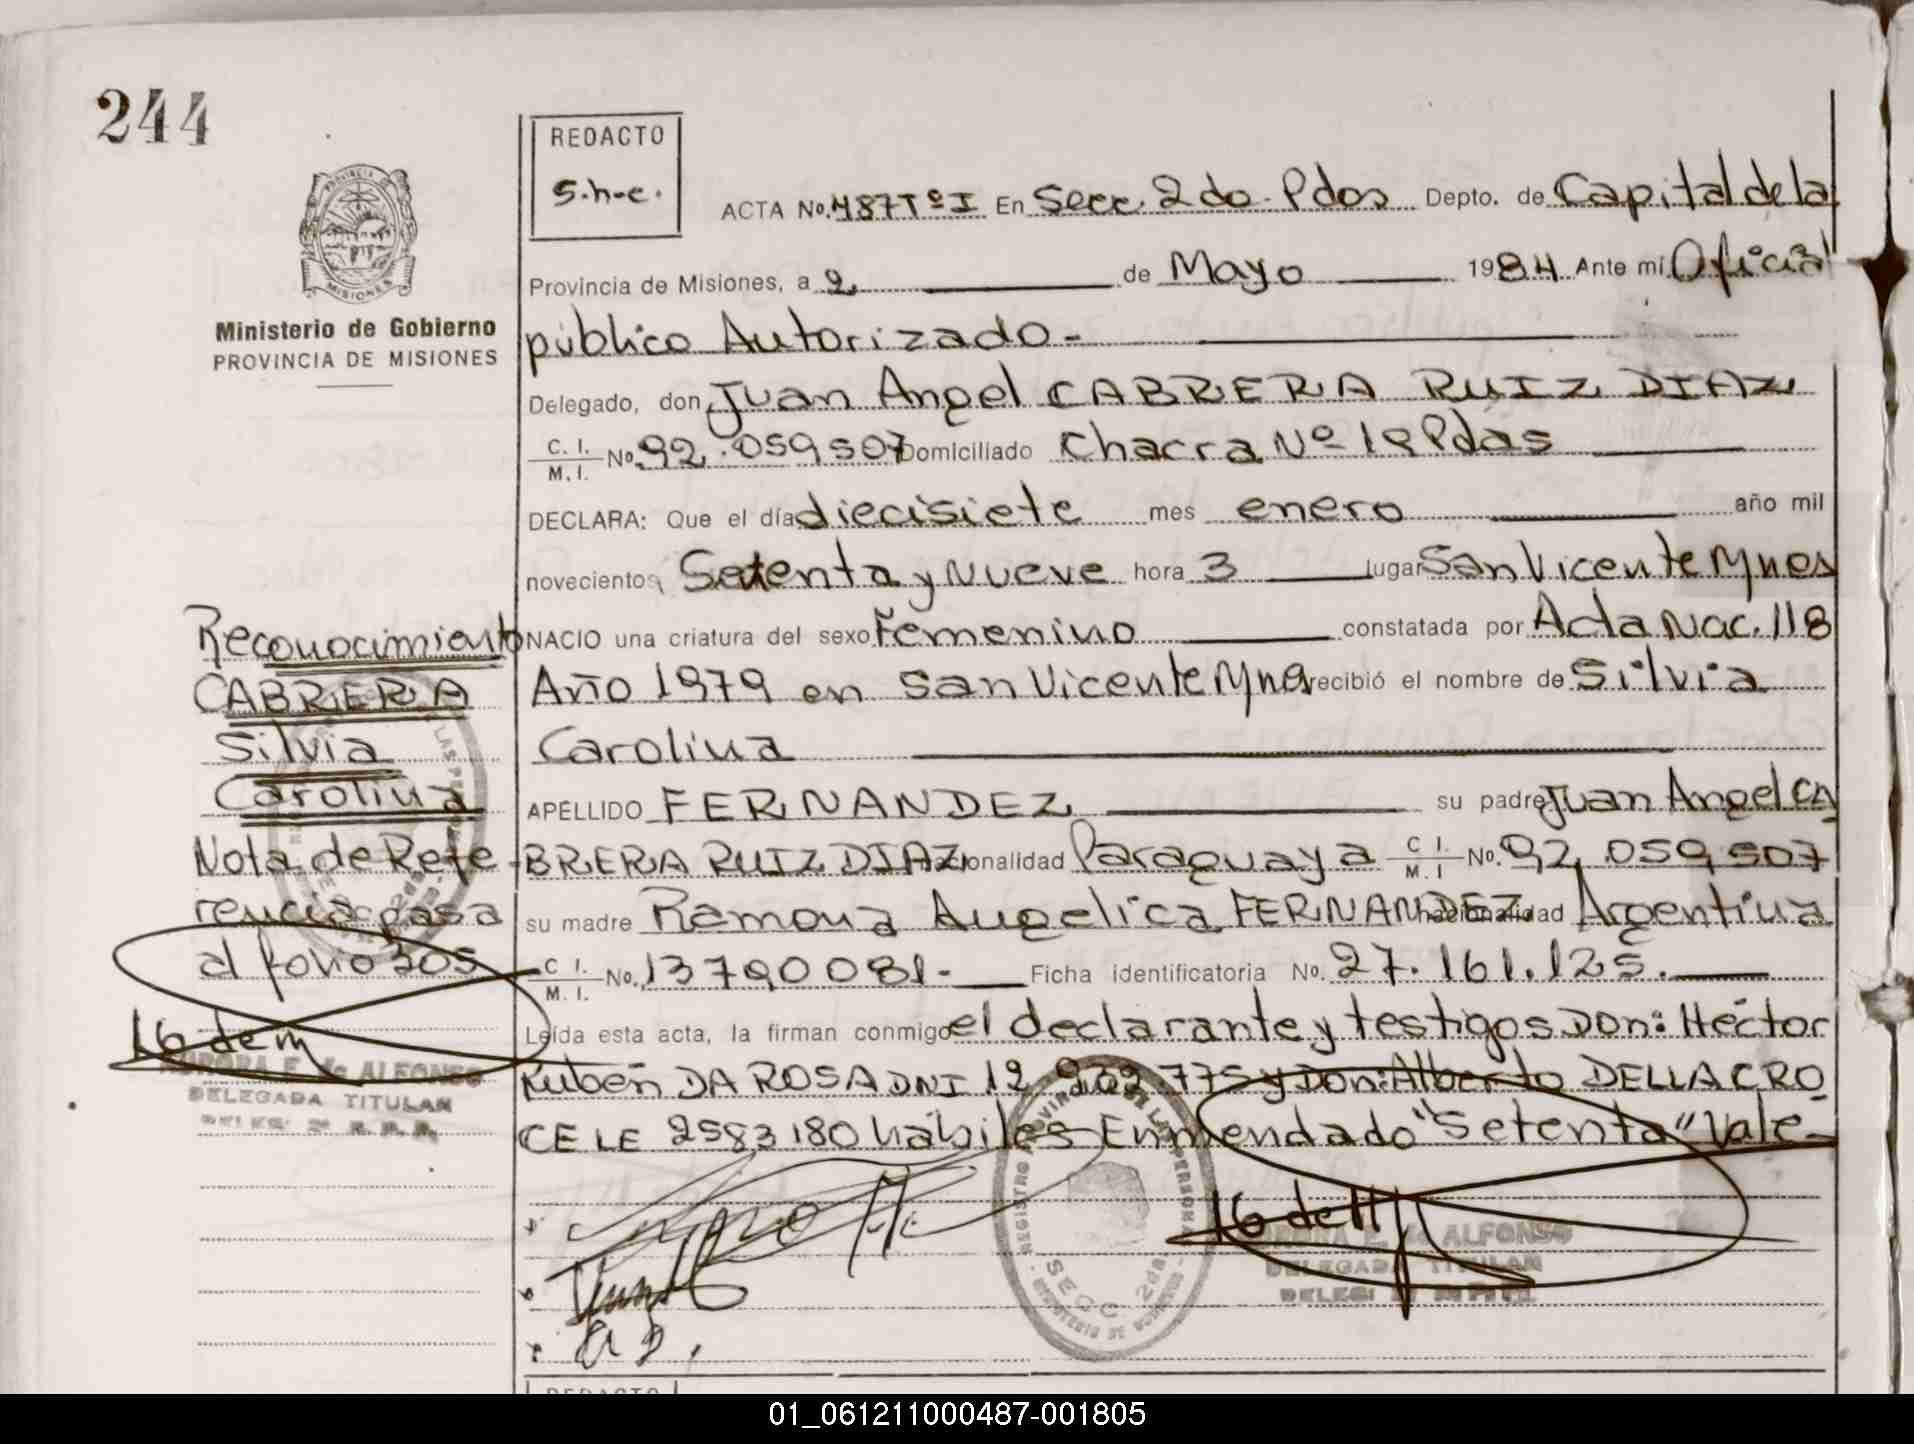 244
REDACTO
S.h-c.
PROVINCIA DE
MISIONES
Ministerio de Gobierno
PROVINCIA DE MISIONES
ACTA No. 487 Tº I En Secc. 2do. Pdos Depto. de Capital de la
Provincia de Misiones, a 2 de Mayo 1984 Ante mi Oficial
público Autorizado -
Delegado, don Juan Angel CABRERA RUIZ DIAZ
C. I. M. I. No. 92.059507 Domiciliado Chacra Nº 18 Pdas
DECLARA: Que el día diecisiete mes enero año mil
novecientos Setenta y Nueve hora 3 lugar San Vicente Mnes
NACIO una criatura del sexo Femenino constatada por Acta Nac. 118
Año 1979 en San Vicente Mnes recibió el nombre de Silvia
Carolina
APELLIDO FERNANDEZ su padre Juan Angel CA
BRERA RUIZ DIAZ nacionalidad Paraguaya C I. M. I No. 92 059507
su madre Ramona Angelica FERNANDEZ nacionalidad Argentina
C I. M. I. No. 13790081.- Ficha identificatoria No. 27.161.125.
Leída esta acta, la firman conmigo el declarante y testigos Don: Héctor
Rubén DA ROSA DNI 12 262 775 y Don: Alberto DELLACRO
CE LE 2583180 hábiles Enmendado "Setenta" Vale-
Reconocimiento
CABRERA
Silvia
Carolina
Nota de Refe
rencia pasa
al folio 305
AURORA E. de ALFONSO
DELEGADA TITULAR
AURORA E. de ALFONSO
DELEGADA TITULAR
SECC. 2da
REDACTO
01_061211000487-001805